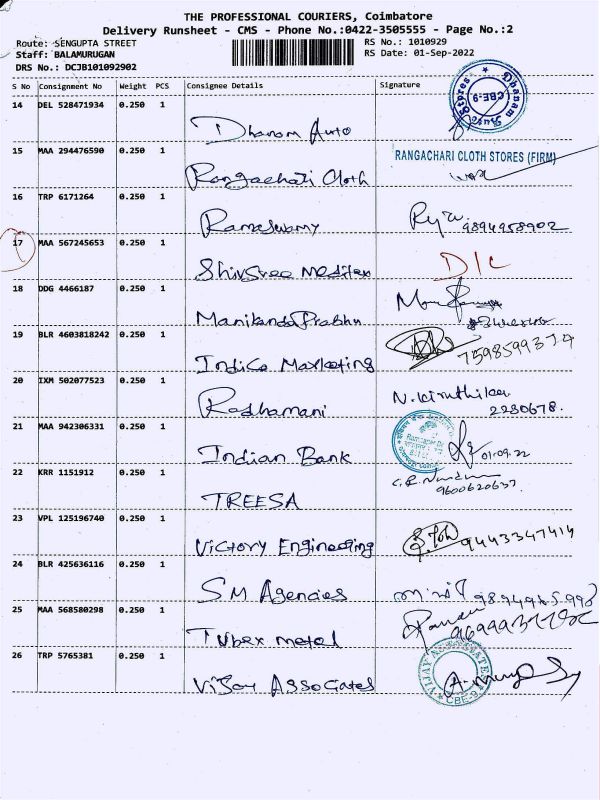 THE PROFESSIONAL COURIERS, Coimbatore
Delivery Runsheet - CMS - Phone No.:0422-3505555 - Page No.:2
Route: SENGUPTA STREET
Staff: BALAMURUGAN
DRS No.: DCJB101092902
RS No.: 1010929
RS Date: 01-Sep-2022
S No Consignment No Weight PCS Consignee Details Signature
14 DEL 528471934 0.250 1 Dhanam Auto
Dhanam CBE-9
15 MAA 294476590 0.250 1 Rangachari Cloth RANGACHARI CLOTH STORES (FIRM)
16 TRP 6171264 0.250 1 Ramaswamy 9894958902
17 MAA 567245653 0.250 1 ShivSree Meditex D/C
18 DDG 4466187 0.250 1 Manikanda Prabhu
19 BLR 4603818242 0.250 1 Indica Marketing
20 IXM 502077523 0.250 1 Radhamani N. Kiruthika
2230678.
21 MAA 942306331 0.250 1 Indian Bank 01.09.22
22 KRR 1151912 0.250 1 TREESA
9600620637
23 VPL 125196740 0.250 1 Victory Engineering 9443347414
24 BLR 425636116 0.250 1 SM Agencies
25 MAA 568580298 0.250 1 Tubex metal
26 TRP 5765381 0.250 1 Vijay Associates
VIJAY CBE-9